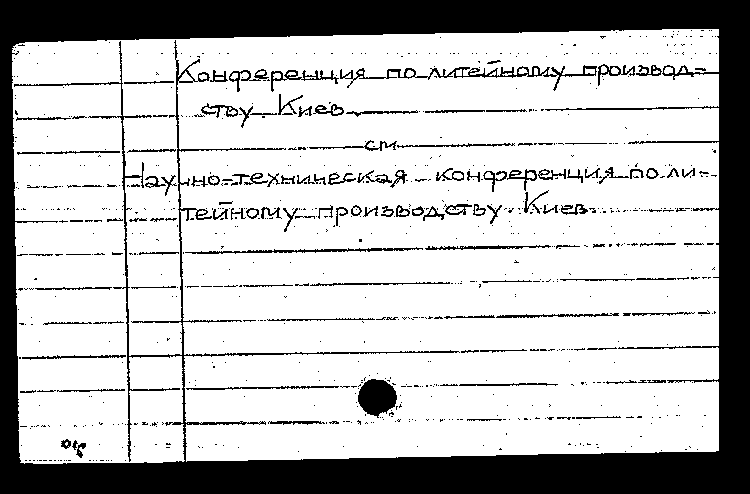 Конференция по литейному производ-
ству. Киев.
см
Научно-техническая конференция по ли-
тейному производству. Киев.